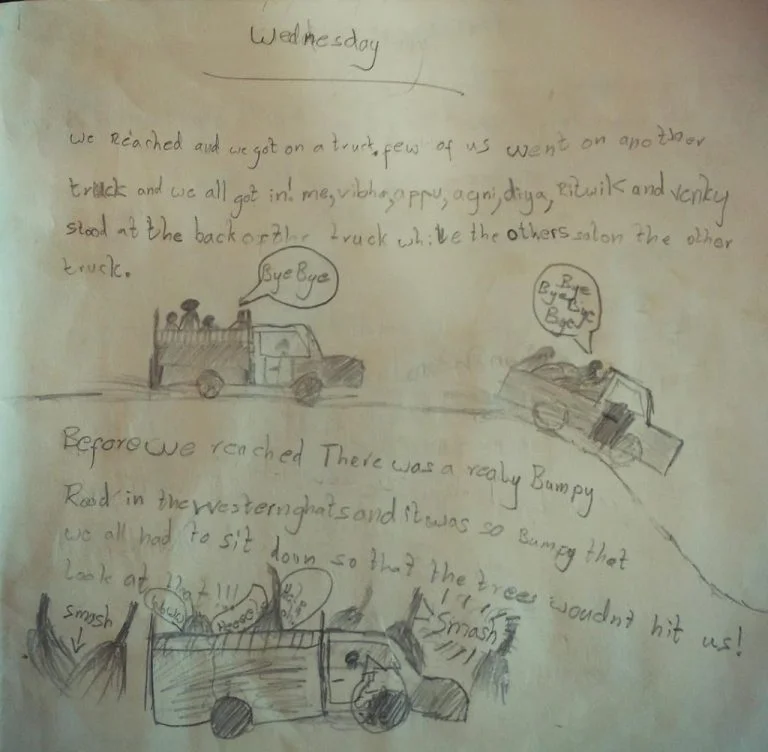 Wednesday
we Reached and we got on a truck. few of us went on another
truck and we all got in! me, vibha, appu, agni, diya, Ritwik and venky
stood at the back of the truck while the others sat on the other
truck.
Bye Bye
Bye
Bye Bye
Bye
Before we reached There was a realy Bumpy
Road in the western ghats and it was so Bumpy that
we all had to sit down so that the trees woudnt hit us!
Look at that!!!
smash
Smash